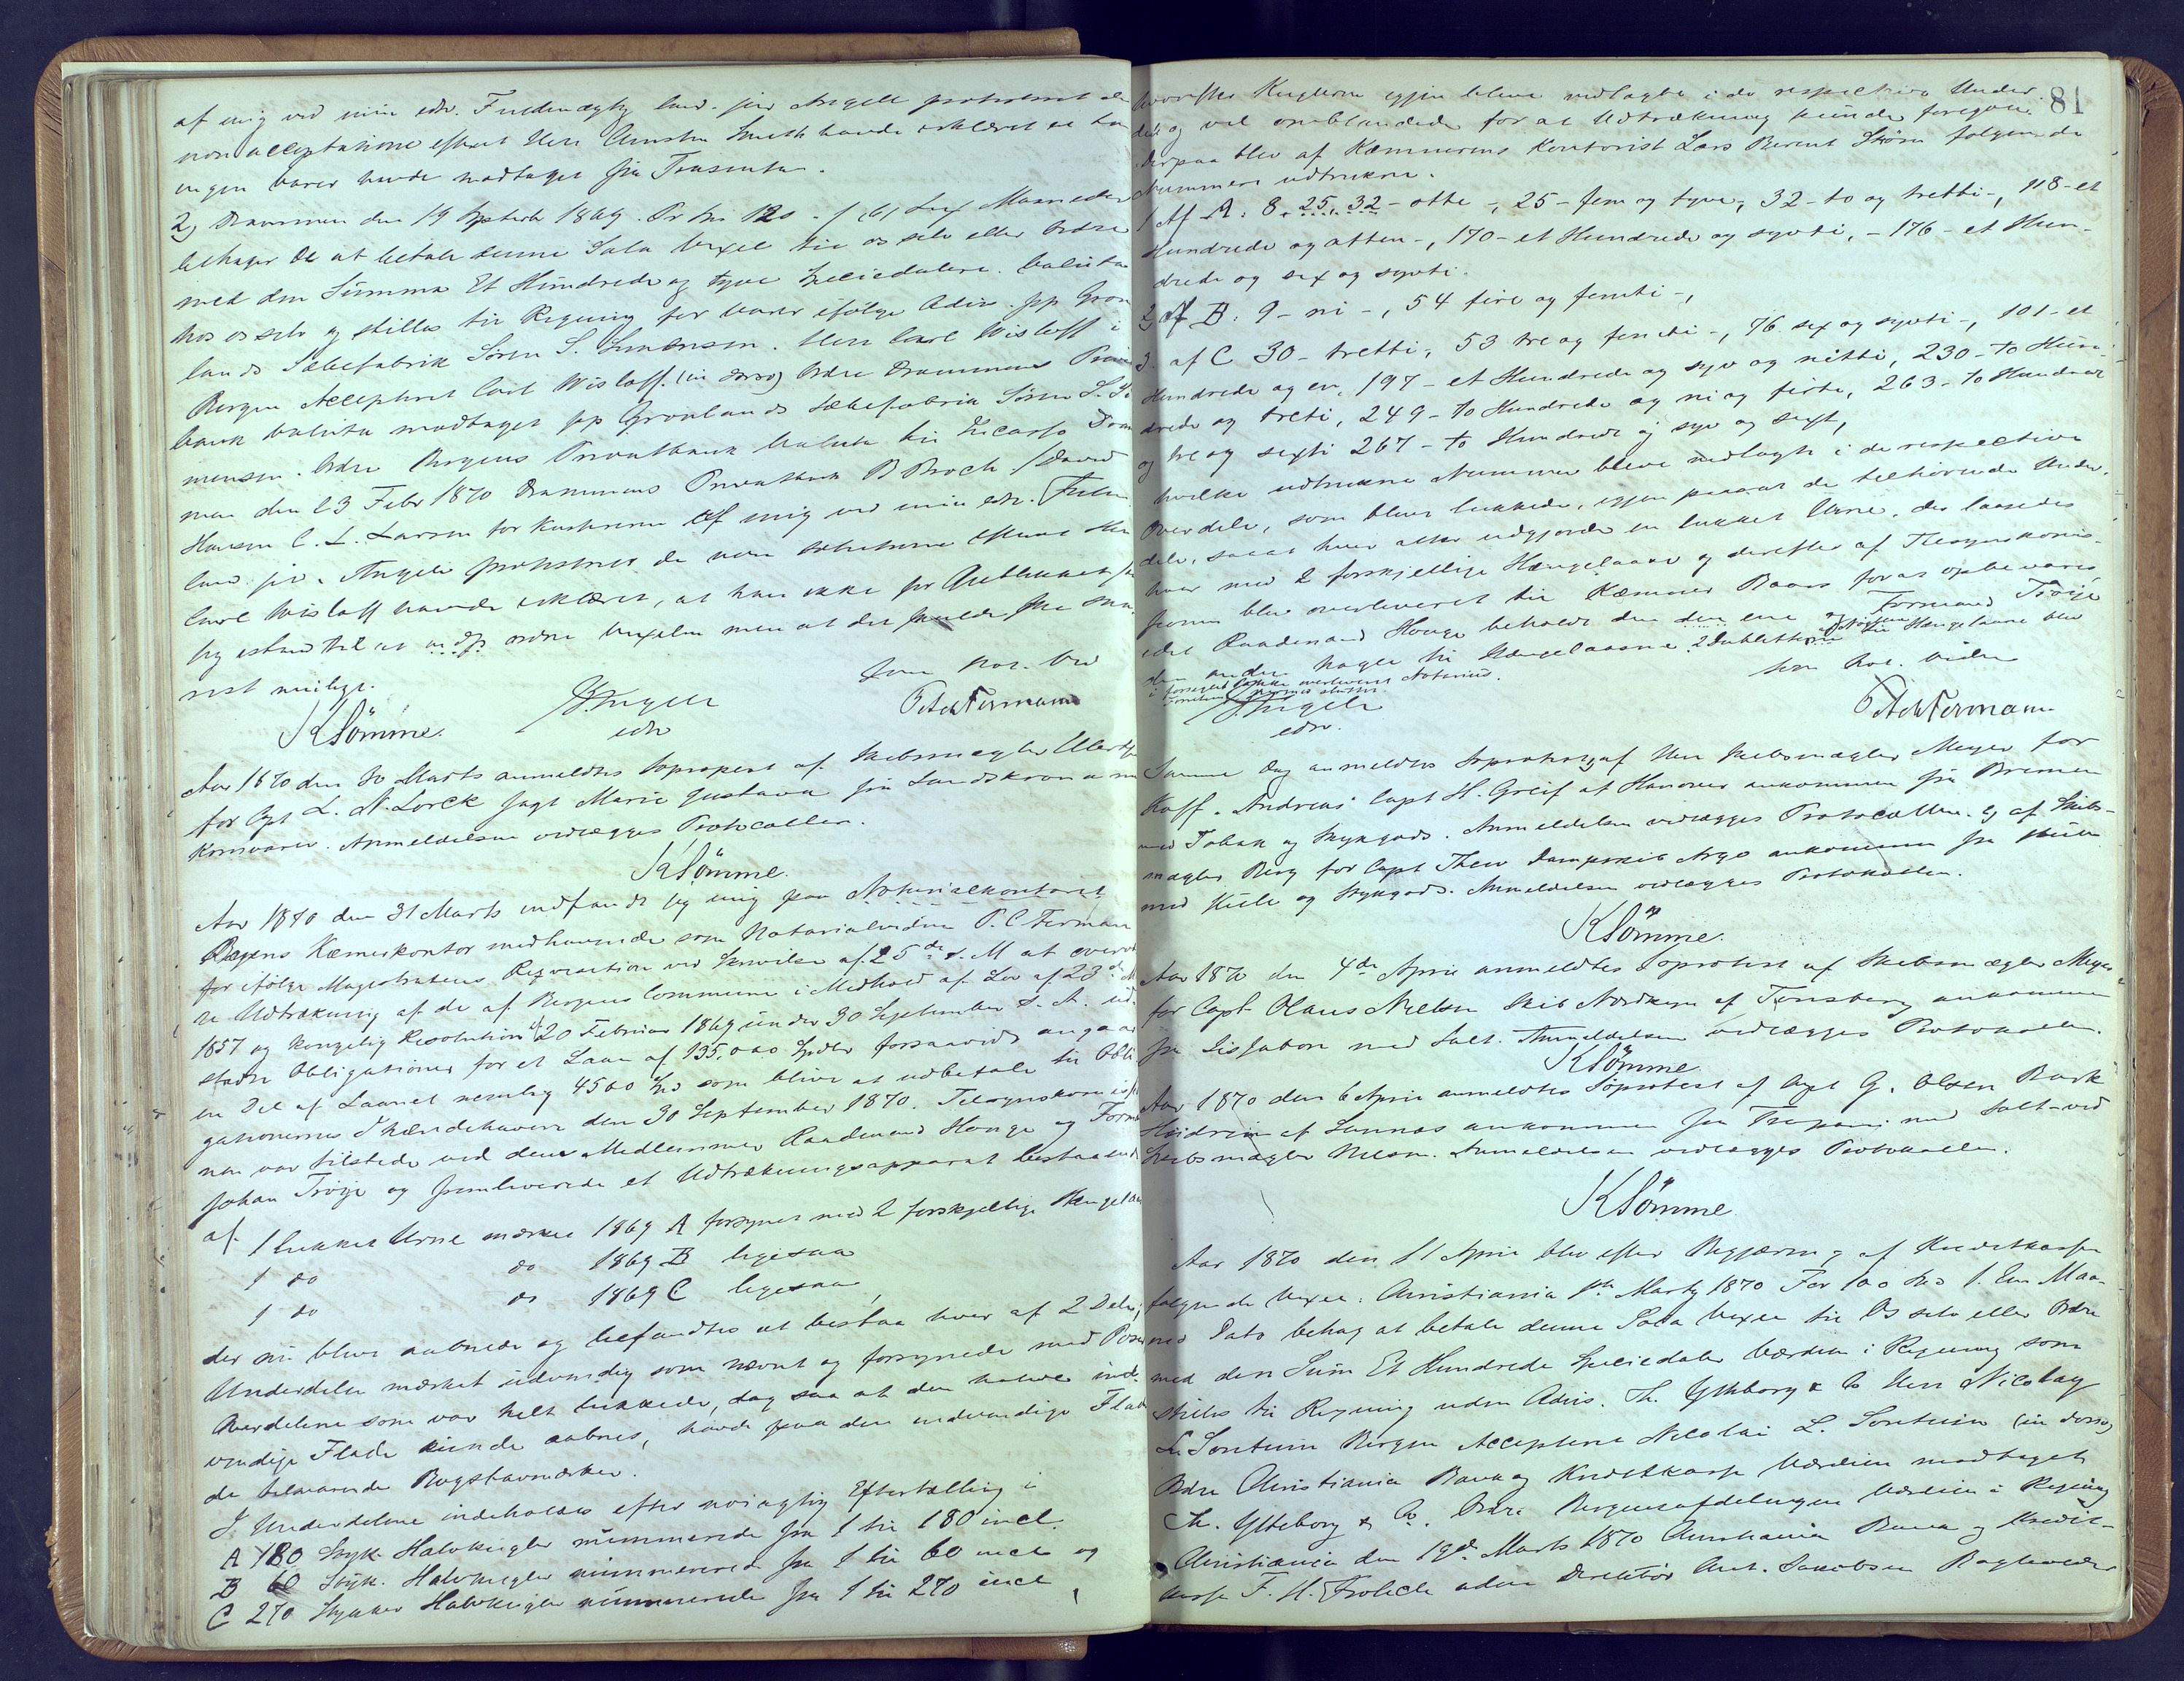 af mig ved min edsv. Fuldmægtig cand. jur Angell protesteret de
non acceptatione efterat Herr Smith havde erklæret at han
ingen varer havde modtaget fra Trasenten.
2, Drammen den 19 Septembr 1869. Pr Sps 120 - 6, sex Maaneder
behager De at betale denne Sola Vexel til os selv eller Ordre
med den Summa Et Hundrede og tyve Speciedalere. Valuta
hos os selv og stilles til Regning for varer ifølge Advis. pp Grøn
lands Sæbefabrik Søren S. Simensen. Herr Carl Wisloff i
Bergen Accepteret Carl Wisloff. (in dorso) Ordre Drammens Privat
bank Valuta modtaget pp Grønlands Sæbefabrik Søren S. Si
mensen. Ordre Bergens Privatbank Valuta til Incasso Dram
men den 23 Febr 1870 Drammens Privatbank B Broch / David
Hansen C. L. Larsen for Kasserern Af mig ved min edsv. Fuldm.
cand jur. Angell protesteret de non solutione efterat Herr
Carl Wisloff havde erklæret, at han ikke for Øieblikket
sig istand til at ordne Vexelen men at det skulde ske sna-
rest muligt.
som Not. Vid
KlSömme. JAngell P. Ack Fermann
edsv
Aar 1870 den 30 Marts anmeldtes Søprotest af Skibsmægler
for Cpt L. N. Lorck Jagt Marie Gustava fra Landskrona med
Kornvarer. Anmeldelsen vedlægges Protocollen.
KlSömme.
Aar 1870 den 31 Marts indfandt jeg mig paa Notarialkontoret
Bergens Kæmnerkontor medhavende som Notarialvidne P. C. Fermann
for ifølge Magistratens Reqvisition ved Skrivelse af 25de d. M at overvæ
re Udtrækning af de af Bergens Commune i Medhold af Lov af 23de M
1857 og kongelig Resolution af 20 Februar 1869 under 30 September s. A. ud-
stædte Obligationer for et Laan af 135,000 Spdlr forsaavidt angaar
en Del af Laanet nemlig 4500 Spd som blive at udbetale til Obli
gationernes Ihændehavere den 30 September 1870. Tilsynskomissio
nen var tilstede ved dens Medlemmer Raadmand Houge og Formand
Johan Trøije og fremleverede et Udtrækningsapparat bestaaende
af 1 lukket Urne mærket 1869 A forsynet med 2 forskjellige Hængelaase
1 do do 1869 B ligesaa
1 do do 1869 C ligesaa,
der nu bleve aabnede og befandtes at bestaa hver af 2 Dele,
Underdelen mærket udvendig som nævnt og forsynede med
Overdelene som var helt lukkede, dog saa at den halve ind-
vendige Flade kunde aabnes, havde paa den indvendige Flade
de tilsvarende Bogstavmærker.
I Underdelene indeholdes efter nøiagtig Eftertælling i
A 180 Styk. Halvkugler nummerede fra 1 til 180 incl.
B 60 Styk. Halvkugler nummererede fra 1 til 60 incl og
C 270 Stykker Halvkugler nummerede fra 1 til 270 incl
81
hvorefter Kuglerne igjen bleve nedlagte i de respective Under
dele og vel omblandede for at Udtrækning kunde foregaa.
Derpaa blev af Kæmnerens Kontorist Lars Berent Støren følgende
Nummere udtrukne.
1 Af A: 8, 25, 32 - otte -, 25 - fem og tyve, 32 - to og tretti -, 118 - et
Hundrede og atten -, 170 - et Hundrede og sytti, - 176 - et Hun-
drede og sex og sytti.
2, Af B: 9 - ni -, 54 fire og femti -,
3. af C 30 - tretti, 53 tre og femti -, 76 sex og sytti -, 101 - et
Hundrede og en, 197 - et Hundrede og syv og nitti, 230 - to Hun-
drede og tretti, 249 - to Hundrede og ni og førti, 263 - to Hundrede
og tre og sexti 267 - to Hundrede og syv og sexti,
hvilke udtrukne Nummere bleve nedlagte i de respective
Overdele, som bleve lukkede, igjen paasat de tilhørende Under-
dele, saaat hver atter udgjorde en lukket Urne, der laasedes
hver med 2 forskjellige Hængelaase og derefter af Tilsynskomis-
sionen blev overleveret til Kæmner Baars for at opbevares
idet Raadmand Houge beholdt den den ene og Formand Trøije
den anden Nøgle til Hængelaasene. 2 Dubletter af Nøglene til Hængelaasene blev
i forseglet Pakke overleveret Notarius.
Forretningen hermed sluttet. som Not. vidne
JAngell P. Ack Fermann
edsv.
Samme Dag anmeldtes Søprotest af Herr Skibsmægler Meyer for
Koff. "Andreas" Capt H. Greif af Hanover ankommen fra Bremen
med Tobak og Stykgods. Anmeldelsen vedlægges Protocollen. og af Skibs-
mægler Berg for Capt Thew Dampskib Argo ankommen fra Hull
med Kul og Stykgods. Anmeldelsen vedlægges Protokollen.
KlSömme.
Aar 1870 den 4de April anmeldtes Søprotest af Skibsmægler Meyer
for Capt Olaus Nielsen Skib Nordkyn af Tønsberg ankommen
fra Lissabon med Salt. Anmeldelsen vedlægges Protokollen.
KlSömme
Aar 1870 den 6 April anmeldtes Søprotest af Capt G. Olsen Bark
Hvidrin af Sannæs ankommen fra Trapani med Salt - ved
Skibsmægler Nielsen. Anmeldelsen vedlægges Protokollen.
KlSömme
Aar 1870 den 11 April blev efter Begjæring af Kreditkassen
følgende Vexel: Christiania 1st Marts 1870 For 100 Spd 1. Een Maa-
ned Dato behag at betale denne Sola Vexel til Os selv eller Ordre
med den Sum Et Hundrede Speciedaler Værdien i Regning som
stilles til Regning uden Advis. Th. Ytteborg & Co Herr Nicolay
L. Sontum Bergen Accepteret Nicolai L. Sontum (in dorso)
Ordre Christiania Bank og Kreditkasse Værdien modtaget
Th. Ytteborg & Co. Ordre Bergensafdelingen Værdien i Regning
Christiania den 19de Marts 1870 Christiania Bank og Kredit-
kasse F. H. Frølich adm Direktør Ant. Jacobsen Bogholder